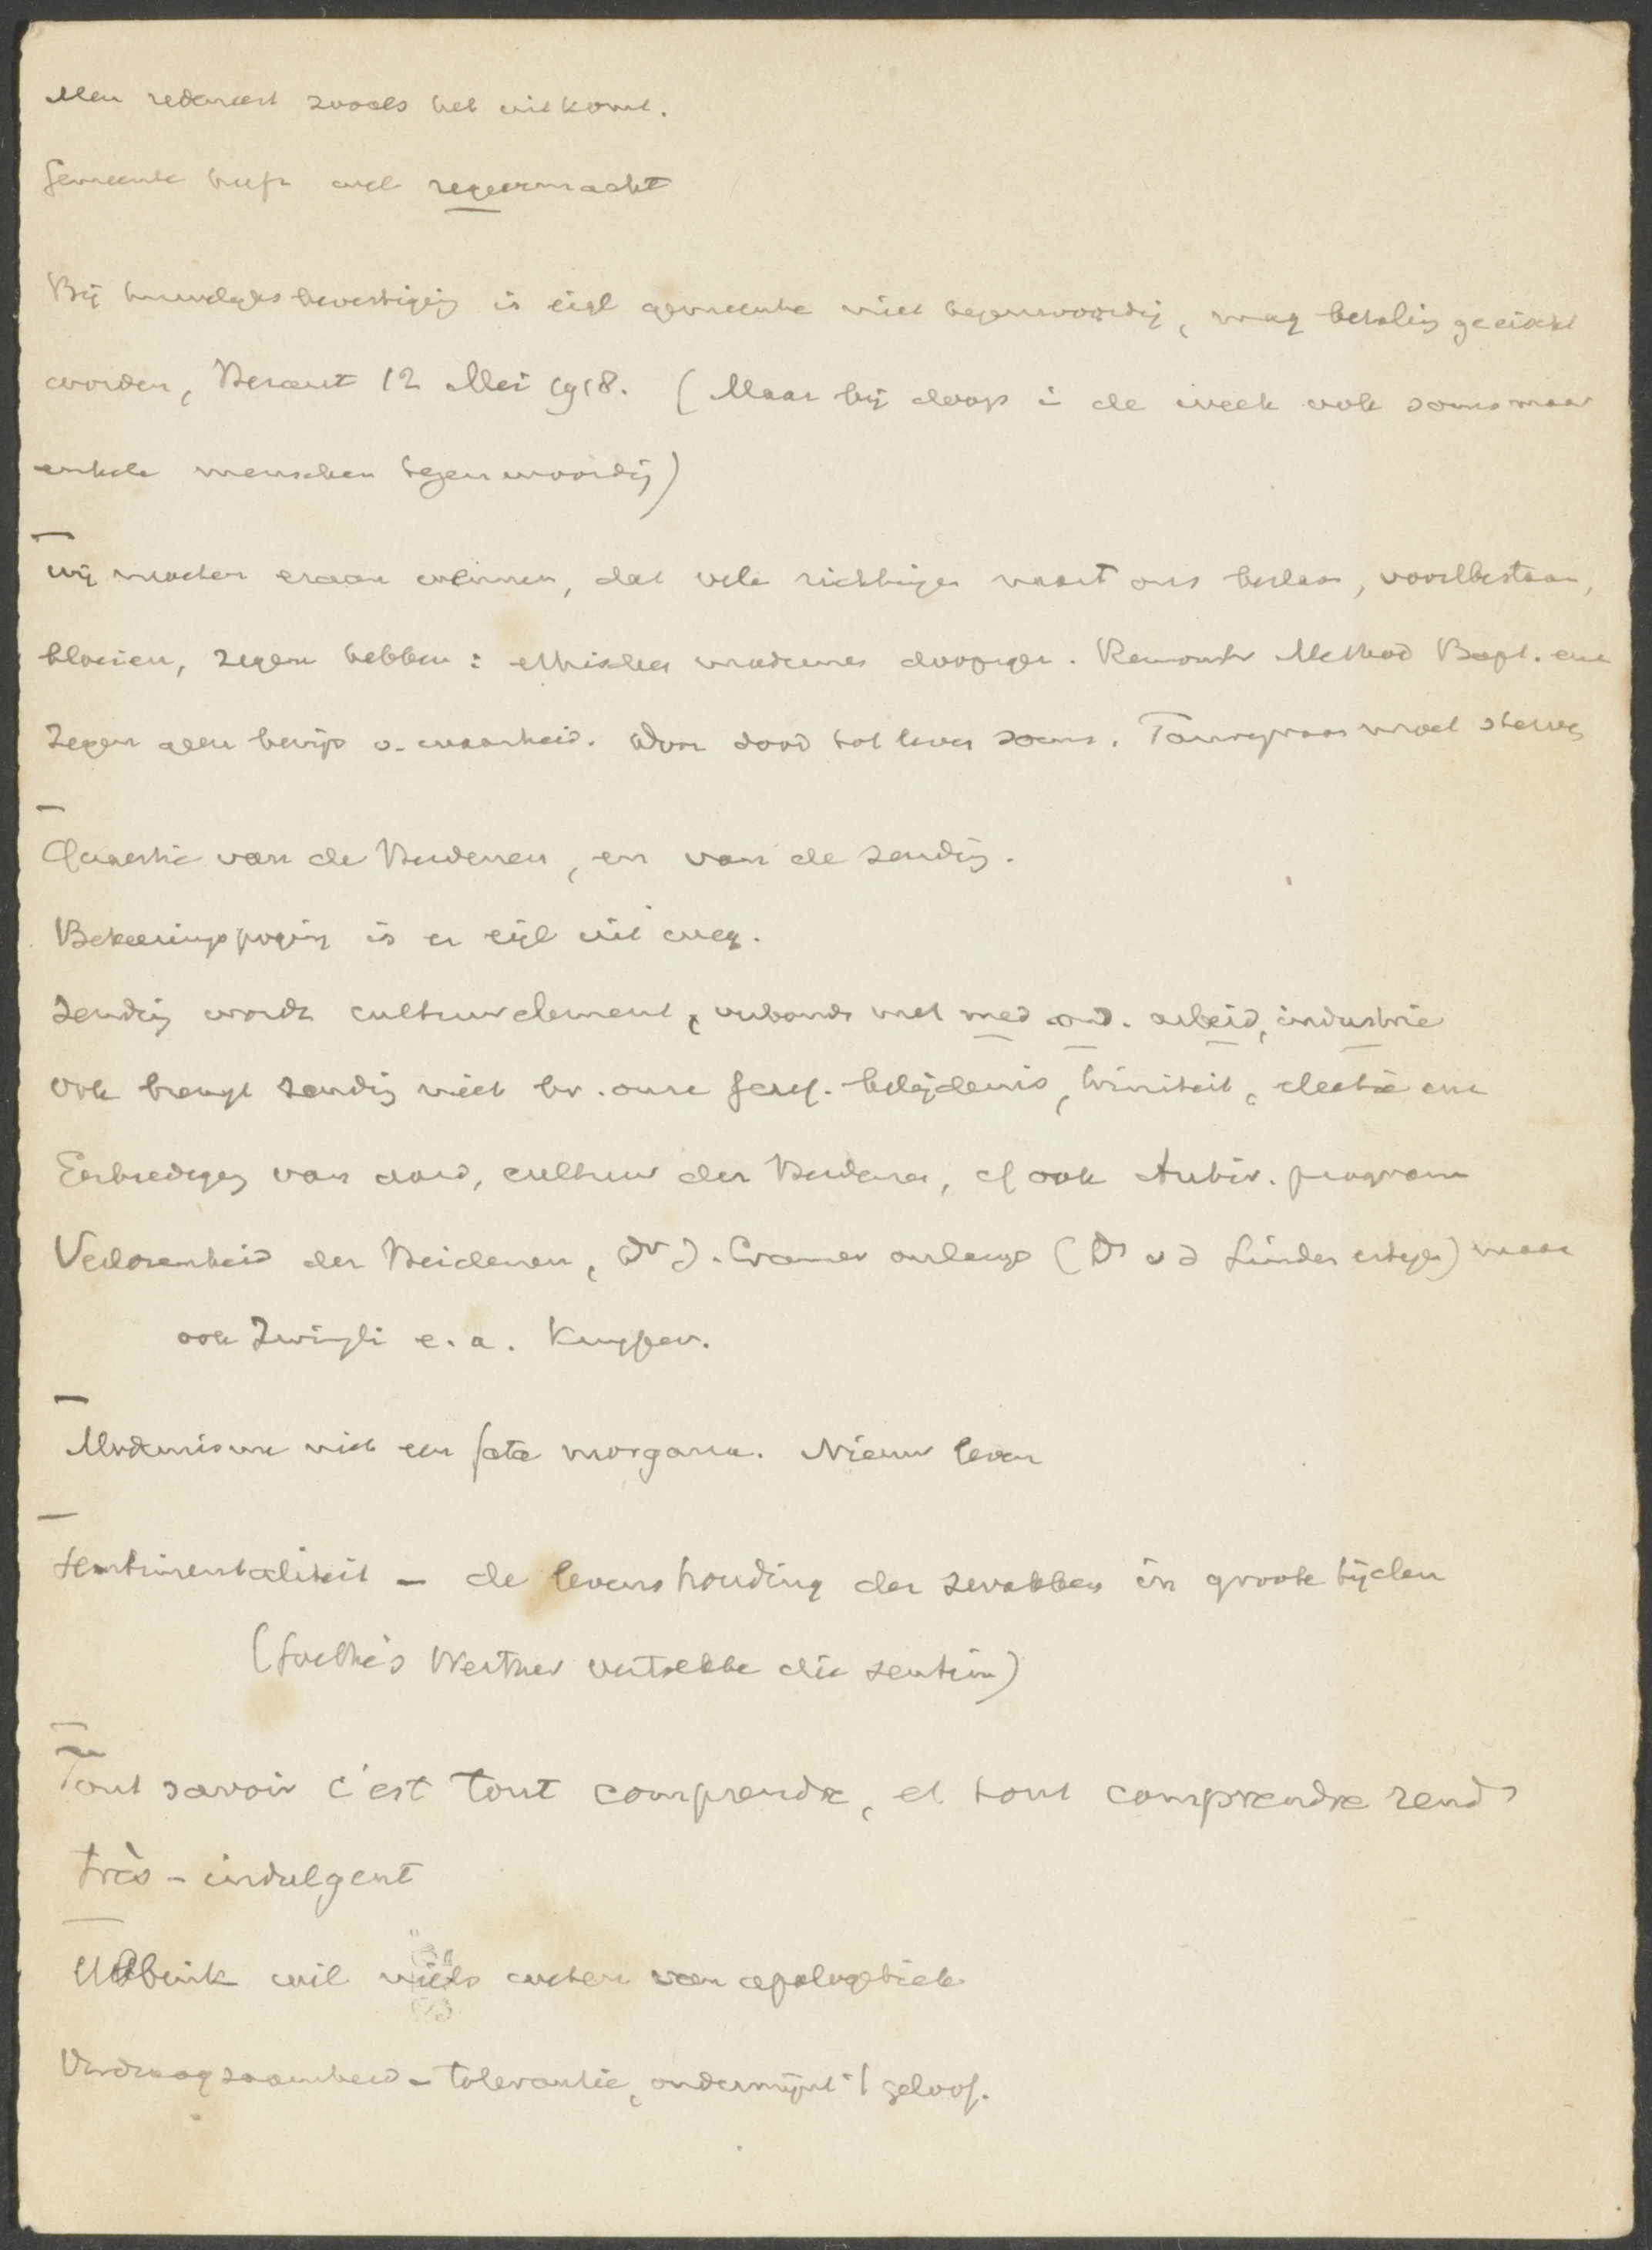 Men redeneert zooals het uitkomt.
Gemeente heeft wel regeermacht
Bij huwelijksbevestiging is eigl gemeente niet tegenwoordig, mag betaling geeischt
worden, Heraut 12 Mei 1918. (Maar bij doop i de week ook soms maar
enkele menschen tegenwoordig)
Wij moeten eraan wennen, dat vele richtingen naast ons bestaan, voortbestaan,
bloeien, zegen hebben: ethischen modernen doopsgez. Remonstr Method Bapt. enz
Zegen geen bewijs v. waarheid. Door dood tot leven soms. Tarwegraan moet sterven
Quaestie van de Heidenen, en van de zending.
Bekeeringspoging is er eigl uit weg.
Zending wordt cultuurelement, verband met med ond. arbeid, industrie
Ook brengt zending niet bv. onze Geref. belijdenis, triniteit, electie enz
Eerbiediging van aard, cultuur der Heidenen, cf ook Antirev. program
Verlorenheid der Heidenen, Dr J. Cramer onlangs (Ds v d Linden ertegen) maar
ook Zwingli e.a. Kuyper.
Modernisme niet een fata morgana. Nieuw leven
Sentimentaliteit - de levenshouding der zwakken in groote tijden
(Goethe's Werther vertrekke die sentim)
Tout savoir c'est tout comprendre, et tout comprendre rend
très-indulgent
Ubbink wil niets weten van apologetiek
Verdraagzaamheid - tolerantie, ondermijnt 't geloof.